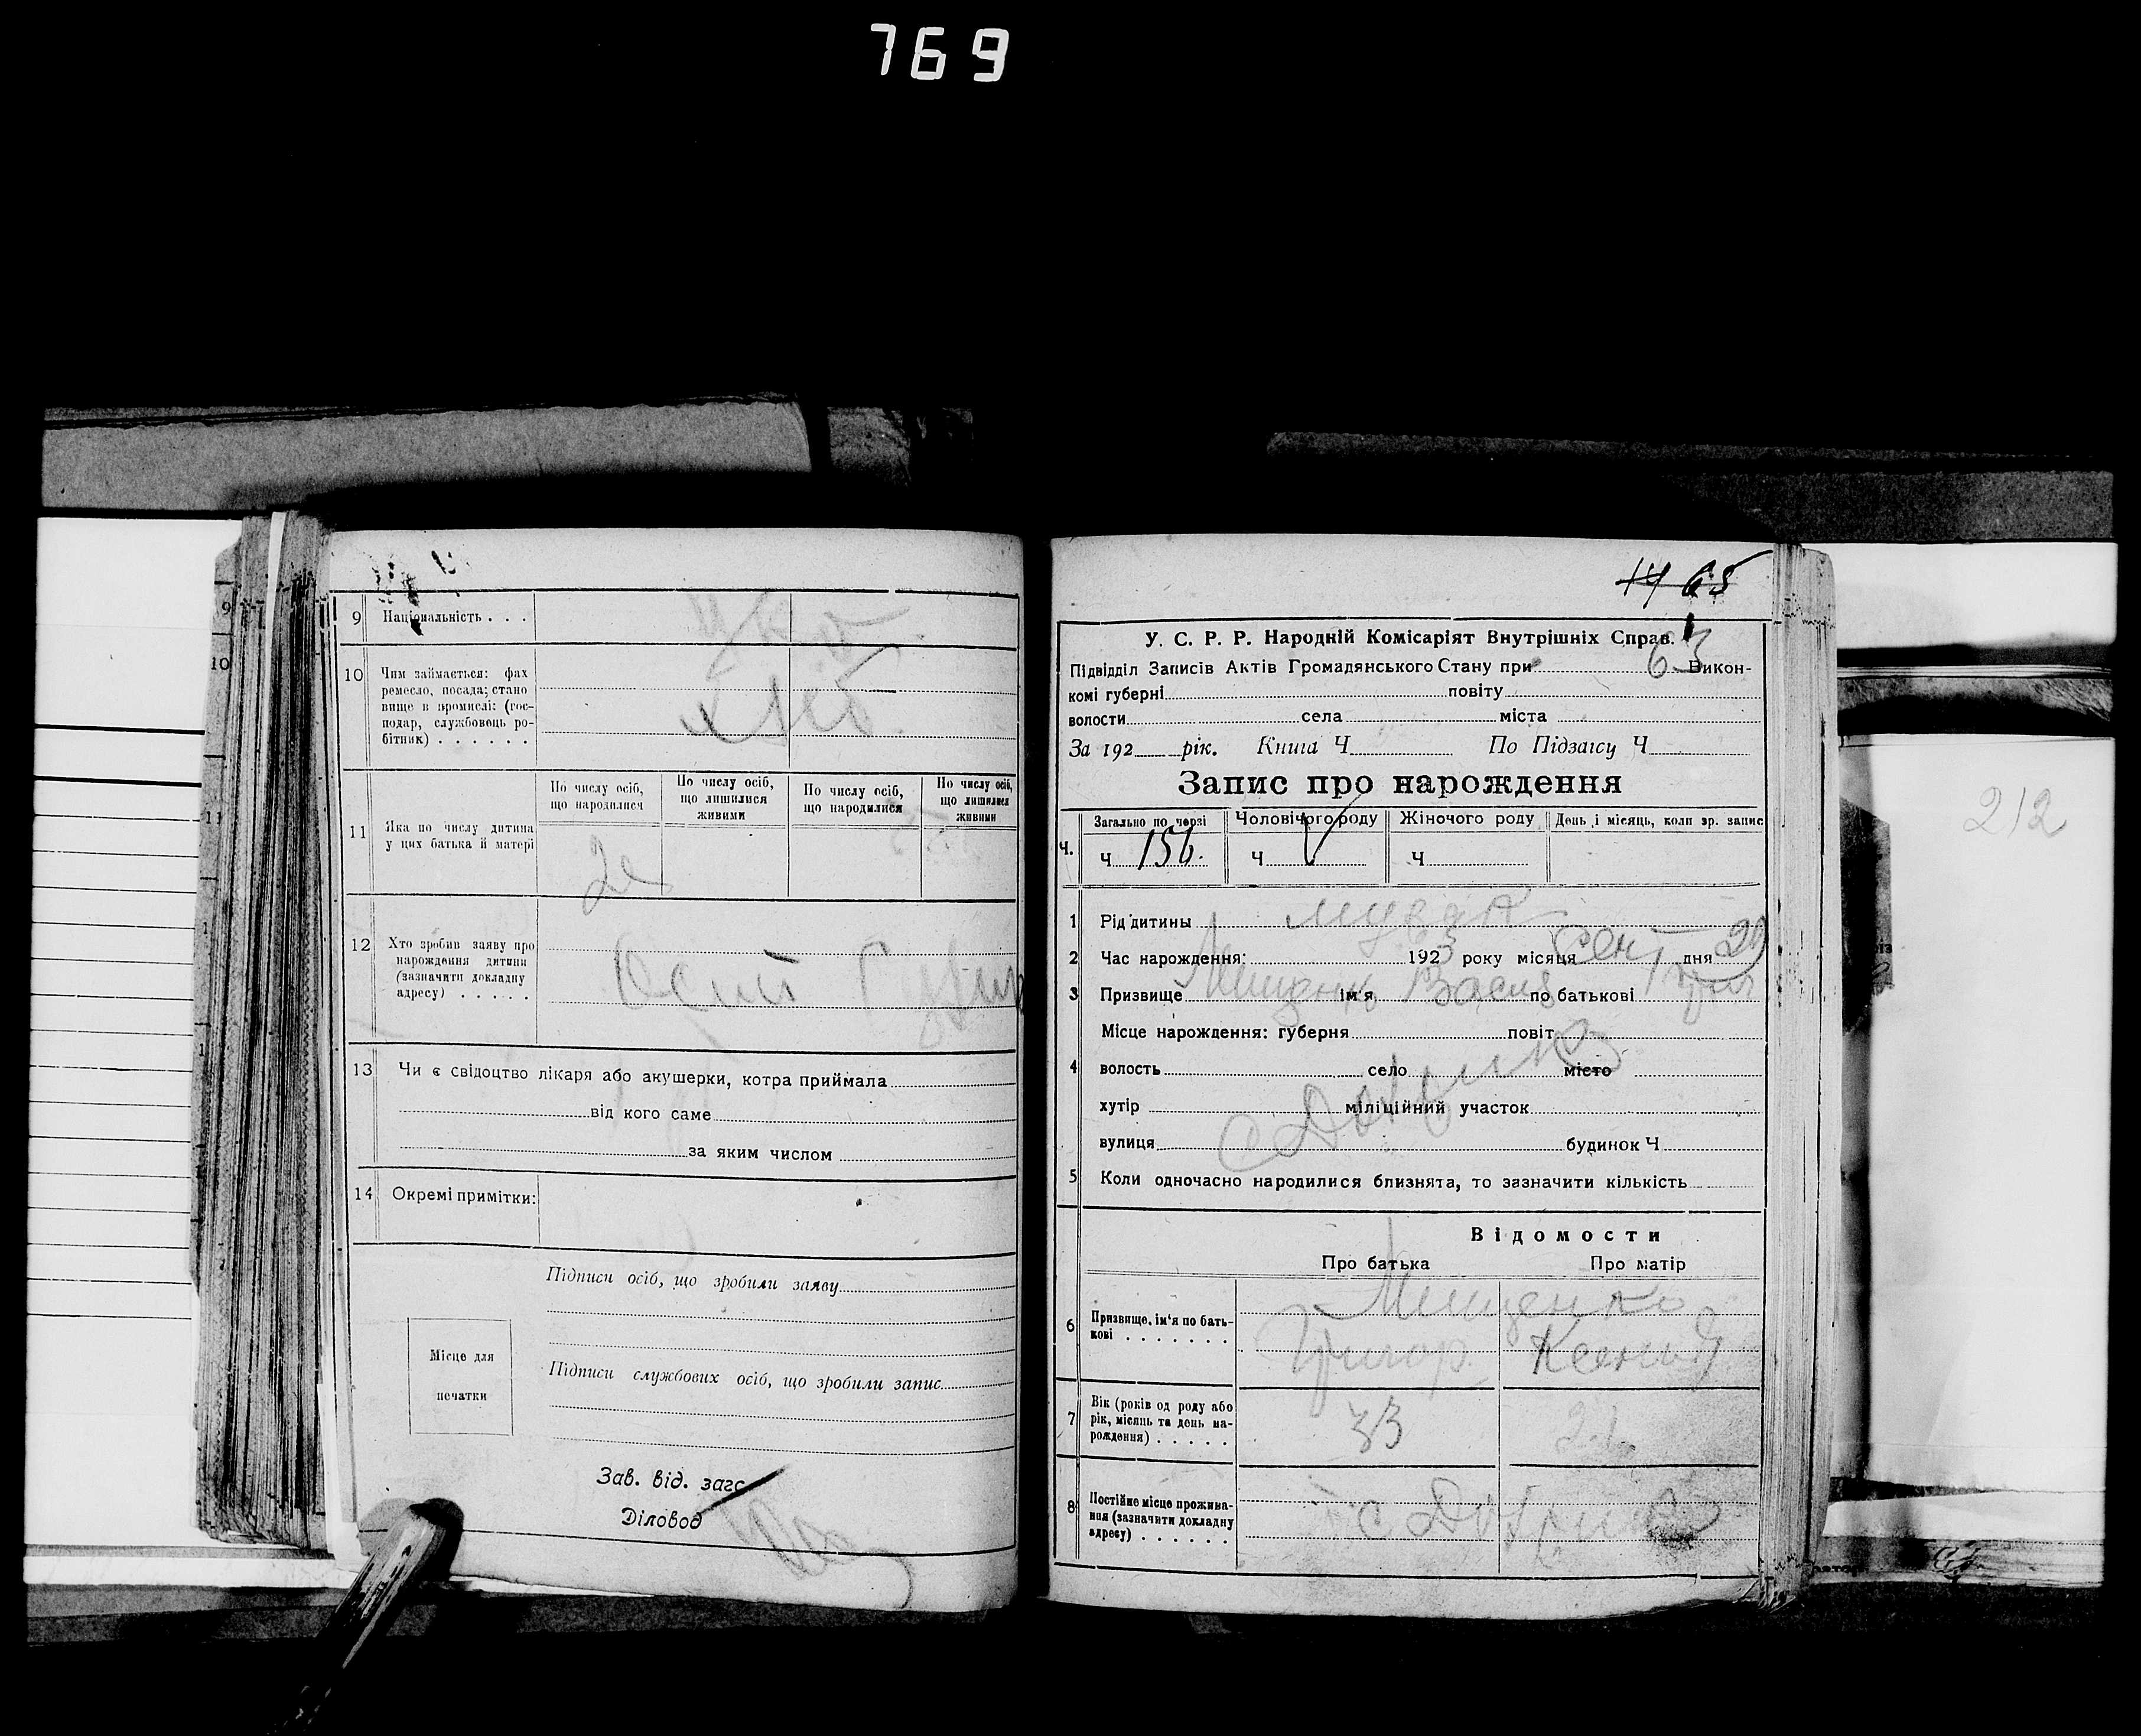 769
9 Національність . . .
Укр
10 Чим займається: фах
ремесло, посада; стано
вище в промислі: (гос-
подар, службовець ро-
бітник) . . . . . .
Хліб
По числу осіб, що народилися
По числу осіб, що лишилися живими
По числу осіб, що народилися
По числу осіб, що лишилися живими
11 Яка по числу дитина
у цих батька й матері
2
12 Хто зробив заяву про
нарождення дитини
(зазначити докладну
адресу) . . . . .
13 Чи є свідоцтво лікаря або акушерки, котра приймала
від кого саме
за яким числом
14 Окремі примітки:
Підписи осіб, що зробили заяву
Місце для
печатки
Підписи службових осіб, що зробили запис
Зав. від. загс
Діловод
14 65
63
У. С. Р. Р. Народній Комісаріят Внутрішніх Справ.
Підвідділ Записів Актів Громадянського Стану при Викон-
комі губерні повіту
волости села міста
За 192 рік. Книга Ч По Підзагсу Ч
Запис про нарождення
Ч. Загально по черзі Чоловічого роду Жіночого роду День і місяць, коли зр. запис
Ч 156. Ч V Ч
1 Рід дитины
2 Час нарождення: 1923 року місяця Сент дня 29
3 Призвище Мищенко ім'я Василь по батькові Григ
Місце нарождення: губерня повіт
4 волость село місто
хутір міліційний участок
вулиця будинок Ч
5 Коли одночасно народилися близнята, то зазначити кількість
Відомости
Про батька Про матір
6 Призвище, ім'я по бать-
кові . . . . . . .
Мищенко
Григор. Ксения
7 Вік (років од роду або
рік, місяць та день на-
рождення) . . . . .
33 21
8 Постійне місце прожива-
ння (зазначити докладну
адресу) . . . . . .
с
212